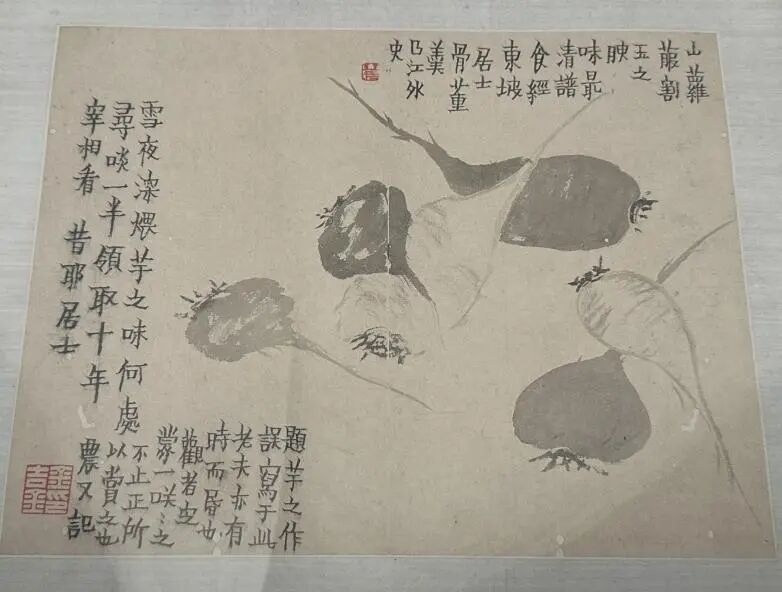 山蘿
菔割
玉之
腴
味最
清譜
食經
東坡
居士
骨董
羹
江外
史
雪夜深煨芋之味何處
尋啖一半領取十年
宰相看 昔耶居士
題芋之作
誤寫于此
老夫亦有
時而昏也
觀者
蒙一咲〻之
不止正所
以賞之也
農又記
金印
吉金